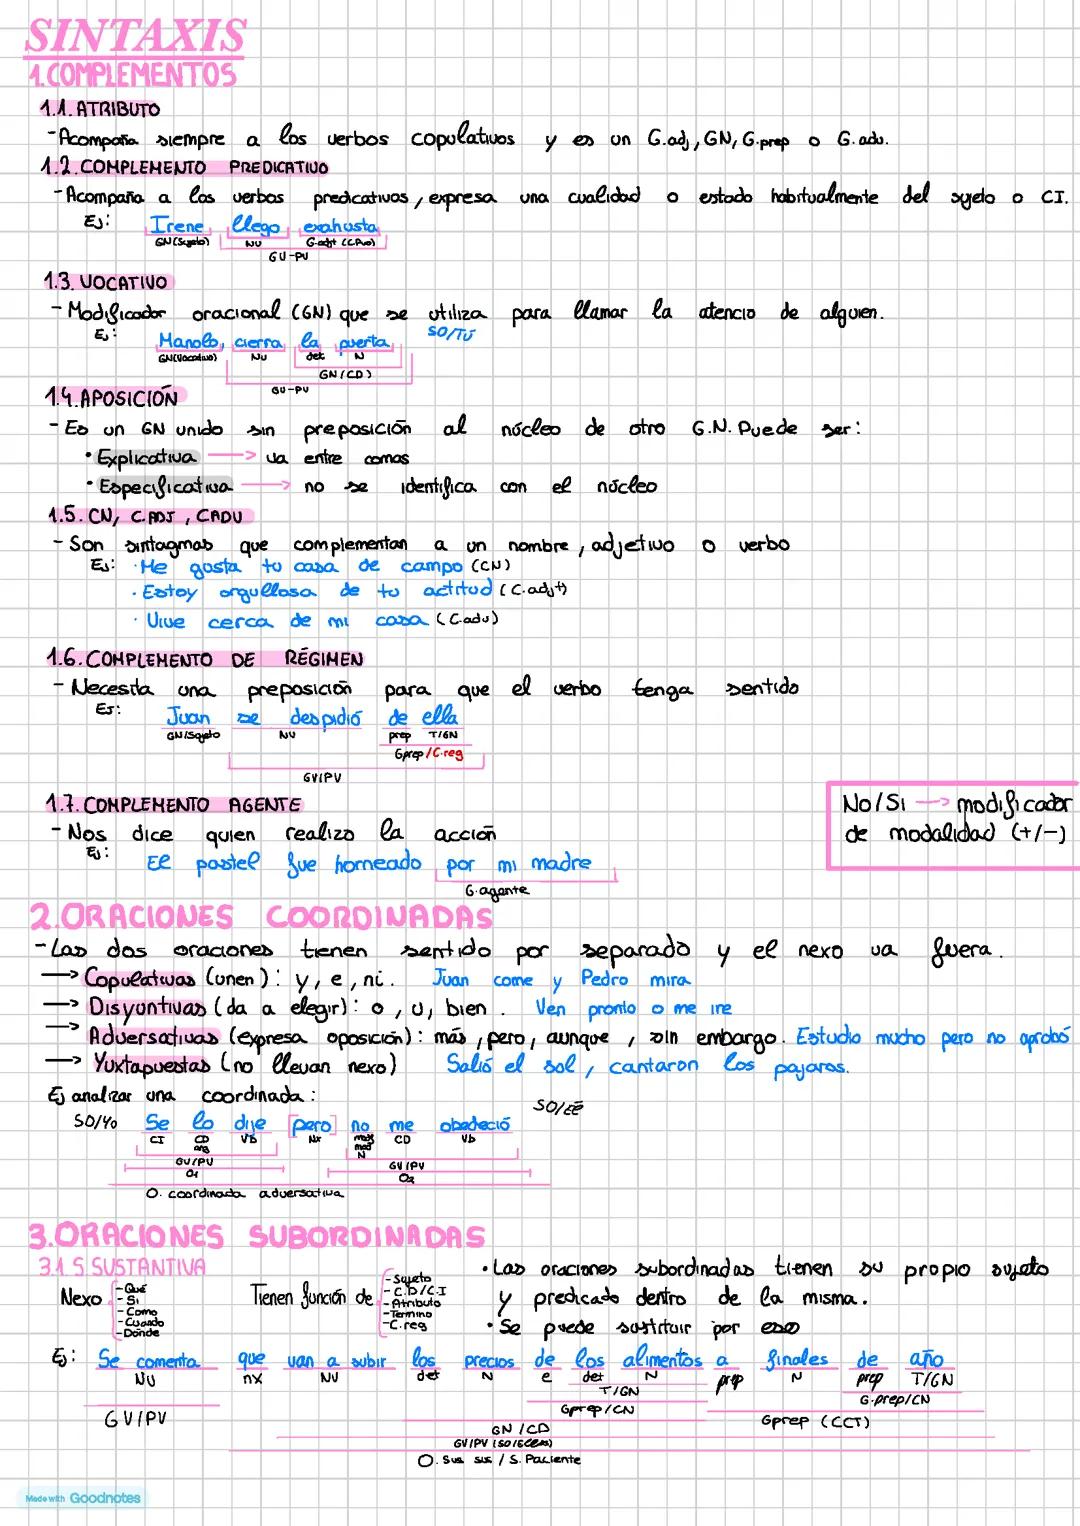 SINTAXIS
1.COMPLEMENTOS
1.1. ATRIBUTO
-Acompaña siempre a los verbos copulativos y es un G.adj, GN, G.prep o G.adv.
1.2. COMPLEMENTO PREDICATIVO
-Acompaña a los verbos predicativos, expresa una cualidad o estado habitualmente del sujeto o CI.
Ej: Irene llego exahusta
GN(Sujeto) NV G.adjt (C.Pvo)
GV-PV
1.3. VOCATIVO
- Modificador oracional (GN) que se utiliza para llamar la atencio de alguien.
Ej: Manolo, cierra la puerta SO/TÚ
GN(Vocativo) NV det N
GN(CD)
GV-PV
1.4. APOSICIÓN
- Es un GN unido sin preposición al núcleo de otro G.N. Puede ser:
• Explicativa → va entre comas
• Especificativa → no se identifica con el núcleo
1.5. CN, C.ADJ, CADV
- Son sintagmas que complementan a un nombre, adjetivo o verbo
Ej: · Me gusta tu casa de campo (CN)
· Estoy orgullosa de tu actitud (C.adjt)
· Vive cerca de mi casa (C.adv)
1.6. COMPLEMENTO DE RÉGIMEN
- Necesita una preposición para que el verbo tenga sentido
Ej: Juan se despidió de ella
GN/Sujeto NV prep T/GN
Gprep/C.reg
GV/PV
1.7. COMPLEMENTO AGENTE
- Nos dice quien realizo la acción
Ej: El pastel fue horneado por mi madre
G.agente
No/Si → modificador
de modalidad (+/-)
2.ORACIONES COORDINADAS
-Las dos oraciones tienen sentido por separado y el nexo va fuera.
→ Copulativas (unen): y, e, ni. Juan come y Pedro mira
→ Disyuntivas (da a elegir): o, u, bien. Ven pronto o me ire
→ Adversativas (expresa oposición): más, pero, aunque, sin embargo. Estudio mucho pero no aprobó
→ Yuxtapuestas (no llevan nexo) Salió el sol, cantaron los pajaros.
Ej analizar una coordinada:
SO/Yo Se lo dije [pero] no me obedeció SO/Él
CI CD Vb Nx mod CD Vb
GV/PV GV/PV
O1 O2
O. coordinada adversativa
3.ORACIONES SUBORDINADAS
3.1 S.SUSTANTIVA
Nexo
-Qué
-Si
-Como
-Cuando
-Donde
Tienen función de
-Sujeto
-C.D/C.I
-Atributo
-Termino
-C.reg
• Las oraciones subordinadas tienen su propio sujeto
y predicado dentro de la misma.
• Se puede sustituir por eso
Ej: Se comenta que van a subir los precios de los alimentos a finales de año
NV nx NV det N e det N prep N prep T/GN
T/GN G.prep/CN
Gprep/CN Gprep (CCT)
GV/PV
GN/CD
O. Sub sus / S. Paciente
Made with Goodnotes